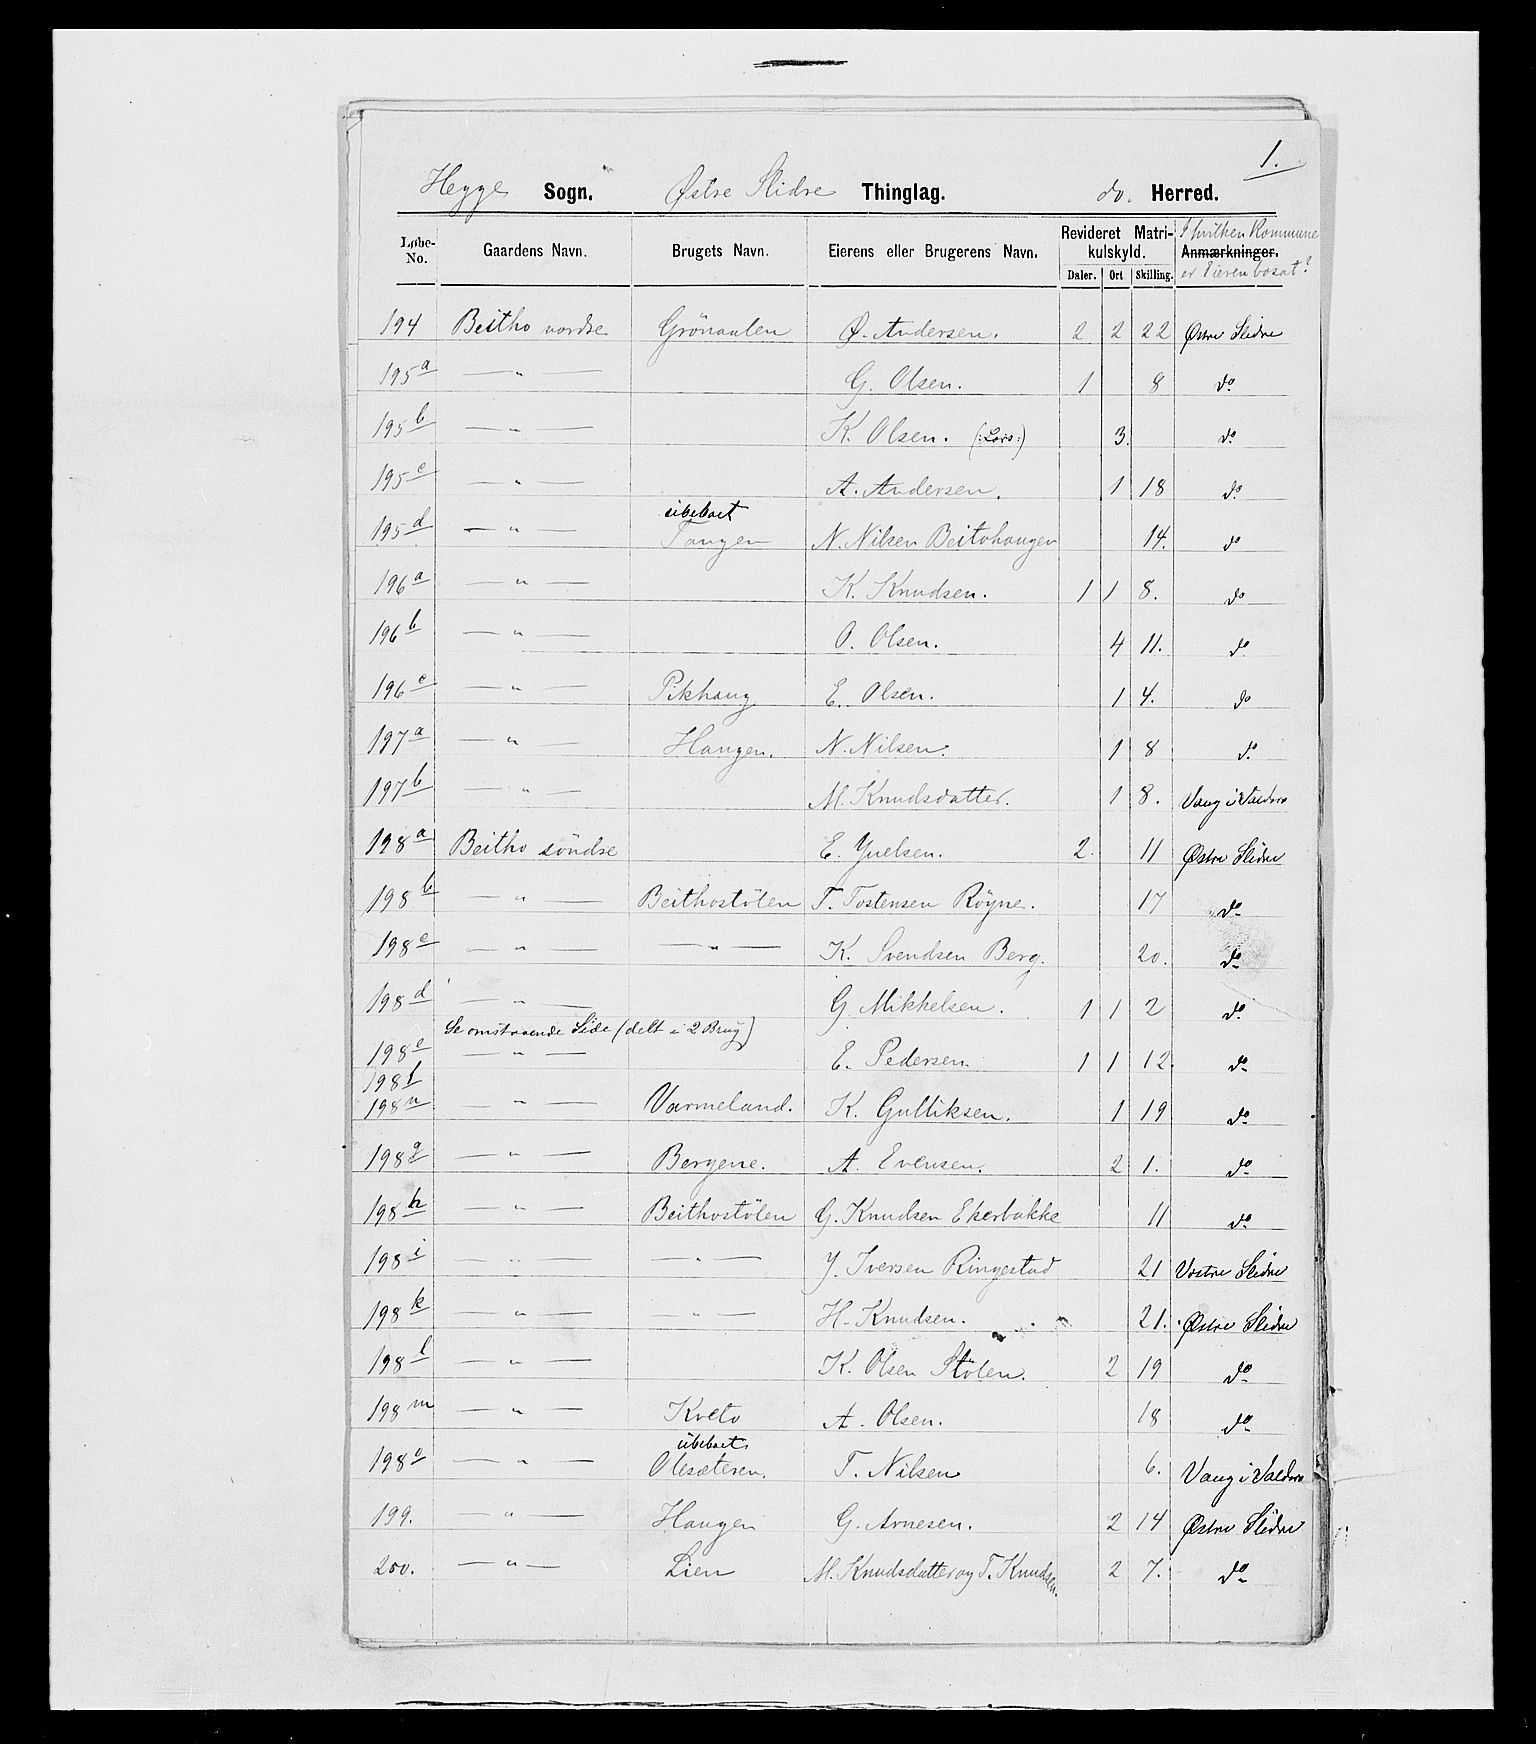 1.
Hegge Sogn. Østre Slidre Thinglag. do. Herred.
Løbe-No. Gaardens Navn. Brugets Navn. Eierens eller Brugerens Navn. Revideret Matrikulskyld. Daler. Ort Skilling. Anmærkninger. I hvilken Kommune er Eieren bosat?
194 Beitho nordre Grönaalen Ø. Andersen. 2 2 22 Østre Slidre
195 a — " — G. Olsen. 1 8 do
195 b — " — K. Olsen. (: Lars:) 3. do
195 c — " — A. Andersen. 1 18 do
195 d — " — ubeboet Tangen N. Nilsen Beitohaugen 14. do
196 a — " — K. Knudsen. 1 1 8. do
196 b — " — O. Olsen. 4 11. do
196 c — " — Pikhaug E. Olsen. 1 4. do
197 a — " — Haugen. N. Nilsen. 1 8 do
197 b — " — M. Knudsdatter. 1 8. Vang i Valdres
198 a Beitho söndre E. Juelsen. 2. 11 Østre Slidre
198 b — " — Beithostölen T. Tostensen Röyne. 17 do
198 c — " — — " — K. Svendsen Berg. 20. do
198 d — " — G. Mikkelsen. 1 1 2 do
Se omstaaende Side (delt i 2 Brug)
198 e — " — E. Pedersen. 1 1 12. do
198 f
198 n — " — Varmeland. K. Gulliksen. 1 19 do
198 g — " — Bergene. A. Evensen. 2 1. do
198 h — " — Beithostölen G. Knudsen Ekerbakke 11 do
198 i — " — — " — J. Iversen Ringestad 21 Vestre Slidre
198 k — " — — " — H. Knudsen. 21. Østre Slidre
198 l — " — K. Olsen Stölen. 2 19 do
198 m — " — Kveto A. Olsen. 18 do
198 o — " — ubeboet Olesæteren. T. Nilsen 6. Vang i Valdres
199. — " — Haugen G. Arnesen. 2 14 Østre Slidre
200. — " — Lien M. Knudsdatter og T. Knudsen. 2 7. do